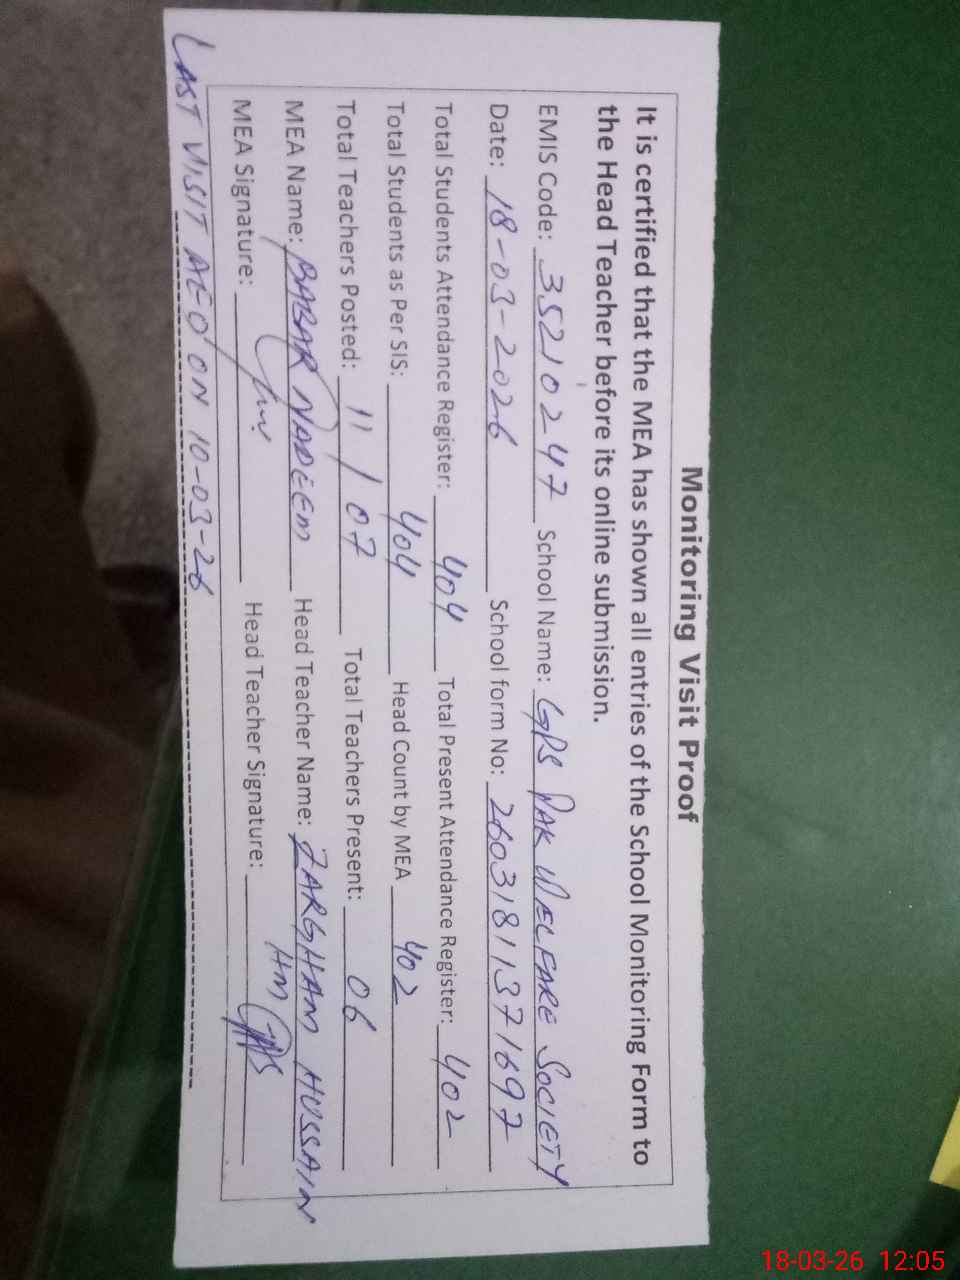 Monitoring Visit Proof
It is certified that the MEA has shown all entries of the School Monitoring Form to
the Head Teacher before its online submission.
EMIS Code: 35210247 School Name: GPS PAK WELFARE SOCIETY
Date: 18-03-2026 School form No: 2603181371697
Total Students Attendance Register: 404 Total Present Attendance Register: 402
Total Students as Per SIS: 404 Head Count by MEA 402
Total Teachers Posted: 11/07 Total Teachers Present: 06
MEA Name: BABAR NADEEM Head Teacher Name: ZARGHAM HUSSAIN
HM
MEA Signature: Head Teacher Signature:
LAST VISIT AEO ON 10-03-26
18-03-26 12:05